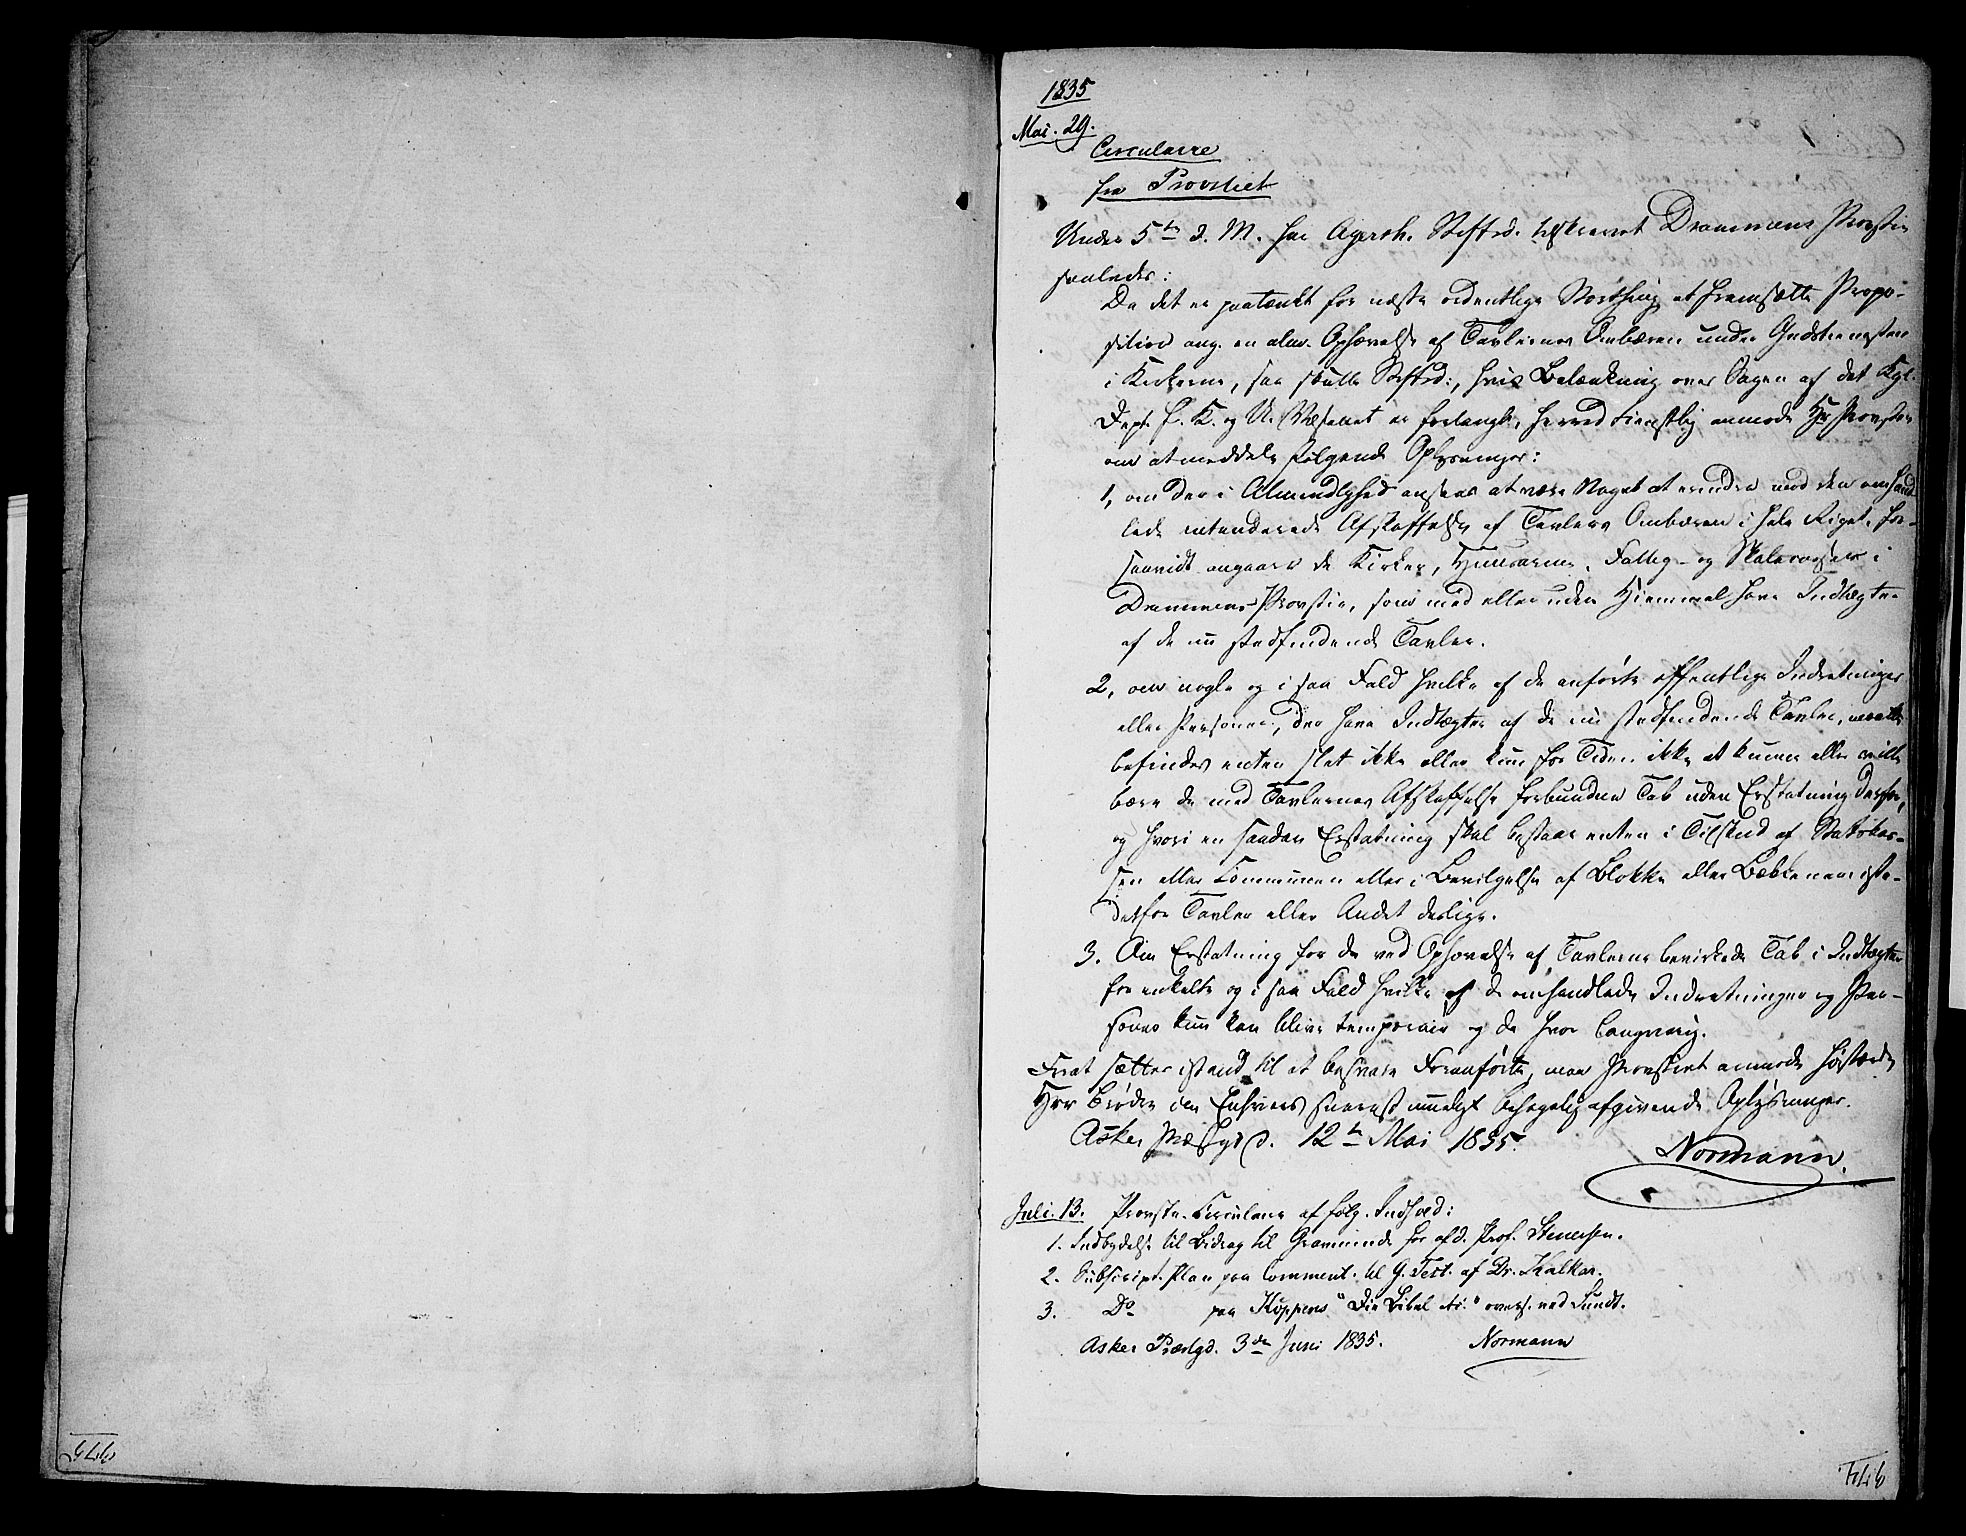 1835
Mai. 29.
Circulaire
fra Provstiet
Under 5te d. M. har Agersh. Stiftsd. tilskrevet Drammens Provstie
saaledes:
Da det er paatænkt for næste ordentlige Storthing at fremsætte Propo-
sition ang. en alm. Ophævelse af Tavlernes Ombæren under Gudstienesten
i Kirkerne, saa skulle Stiftsd:, hvis Betænkning over Sagen af det Kgl.
Dept. f. K. og U. Væsenet er forlangt, herved tienstlig anmode Hr Provsten
om at meddele følgende Oplysninger:
1, om der i Almindelighed ansees at være Noget at erindre mod den omhand-
lede intenderede Afskaffelse af Tavlers Ombæren i hele Riget, for-
saavidt angaaer de Kirker, Fattig- og Skolevæsen i
Drammens Provstie, som med eller uden Hiemmel have Indtægter
af de nu stedfindende Tavler.
2, om nogle og i saa Fald hvilke af de anførte offentlige Indretninger
eller Personer, der have Indtægter af de nu stedfindende Tavler, maatte
befindes enten slet ikke eller kun for Tiden ikke at kunne eller ville
bære de med Tavlernes Afskaffelse forbundne Tab uden Erstatning derfor,
og hvori en saadan Erstatning skal bestaae enten i Tilskud af Statskas-
sen eller Communen eller i Bevilgelse af Blokke eller Bækkener iste-
detfor Tavler eller Andet deslige.
3. Om Erstatning for de ved Ophævelse af Tavlerne bevirkede Tab i Indtægter
for enkelte og i saa Fald hvilke af de omhandlede Indretninger og Per-
soner kun kan blive temporair og da hvor langvarig.
For at sættes istand til at besvare Foranførte, maa Provstiet anmode Høistærede
Hrr Brødre om Enhvers snarest mueligt behagelig afgivende Oplysninger.
Asker Præstgrd. 12te Mai 1835.
Normann.
Juli. 13. Provste-Circulaire af følg. Indhold:
1. Indbydelse til Bidrag til Gravminde for afd. Prof. Stenersen.
2. Subscript. Plan paa Comment. til G. Test. af Dr. Kalkar.
3. Do paa Køppens "Die Bibel etc." overs. ved Sundt.
Asker Præstgd. 3die Juni 1835. Normann